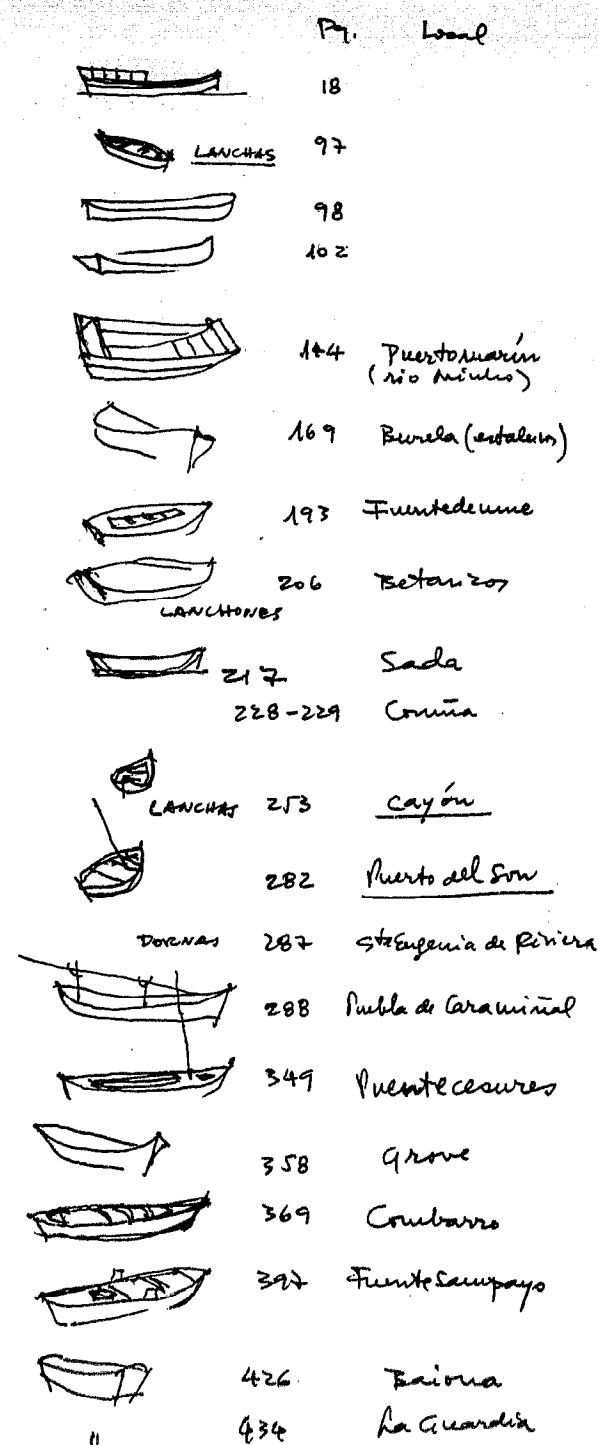 Pg. Local
18
LANCHAS 97
98
102
144 Puertomarín
(rio Minho)
169 Burela (estaleiros)
193 Fuentedeume
206 Betanzos
LANCHONES
217 Sada
228-229 Coruña
LANCHAS 253 Cayón
282 Puerto del Son
DORNAS 287 Sta Eugenia de Riviera
288 Puebla de Caramiñal
349 Puentecesures
358 Grove
369 Combarro
397 Fuente Sampayo
426 Baiona
" 434 La Guardia